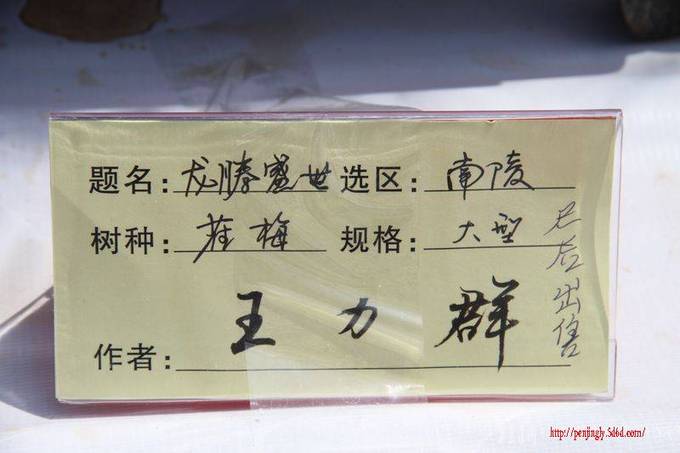 题名: 龙腾盛世 选区: 南陵
树种: 雀梅 规格: 大型
作者: 王力群
后出售
http://penjingly.5d6d.com/